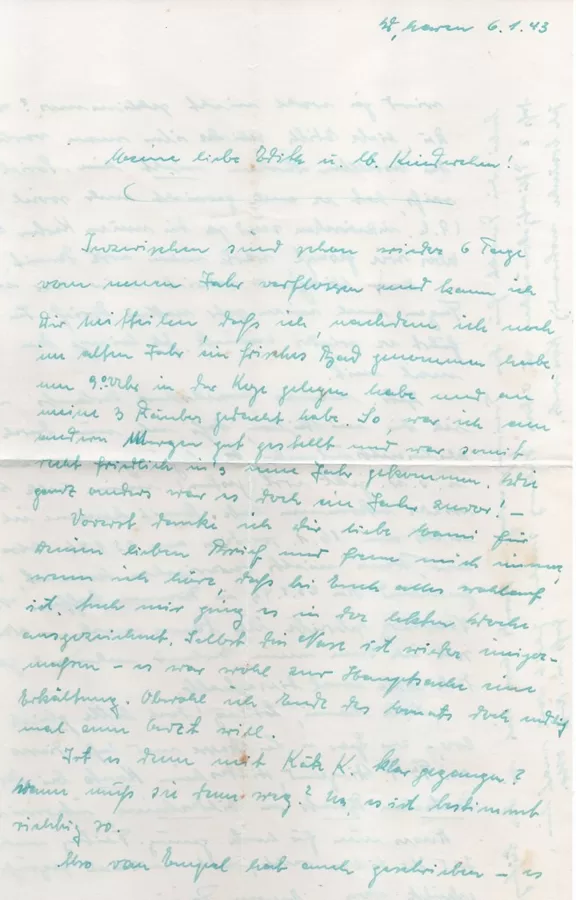 W'haven 6.1.43
Meine liebe Edith u. lb. Kinderchen!
Inzwischen sind schon wieder 6 Tage
vom neuen Jahr verflossen und kann ich
Dir mitteilen, daß ich, nachdem ich noch
im alten Jahr ein frisches Bad genommen habe,
um 9.00 Uhr in der Koje gelegen habe und an
meine 3 Räuber gedacht habe. So war ich am
andern Morgen gut gestellt und war somit
recht friedlich ins neue Jahr gekommen. Wie
ganz anders war es doch im Jahr zuvor! –
Vorerst danke ich Dir liebe Mami für
Deinen lieben Brief und freue mich immer,
wenn ich höre, daß bei Euch alles wohlauf
ist. Auch mir ging es in der letzten Woche
ausgezeichnet. Selbst die Nase ist wieder
– es war wohl zur Hauptsache eine
Erkältung. Obwohl ich Ende des Monats doch
mal zum will.
Ist es denn mit Käte K. klar gegangen?
Wann muß sie denn weg? Na, es ist bestimmt
richtig so.
Also von hat auch geschrieben – es